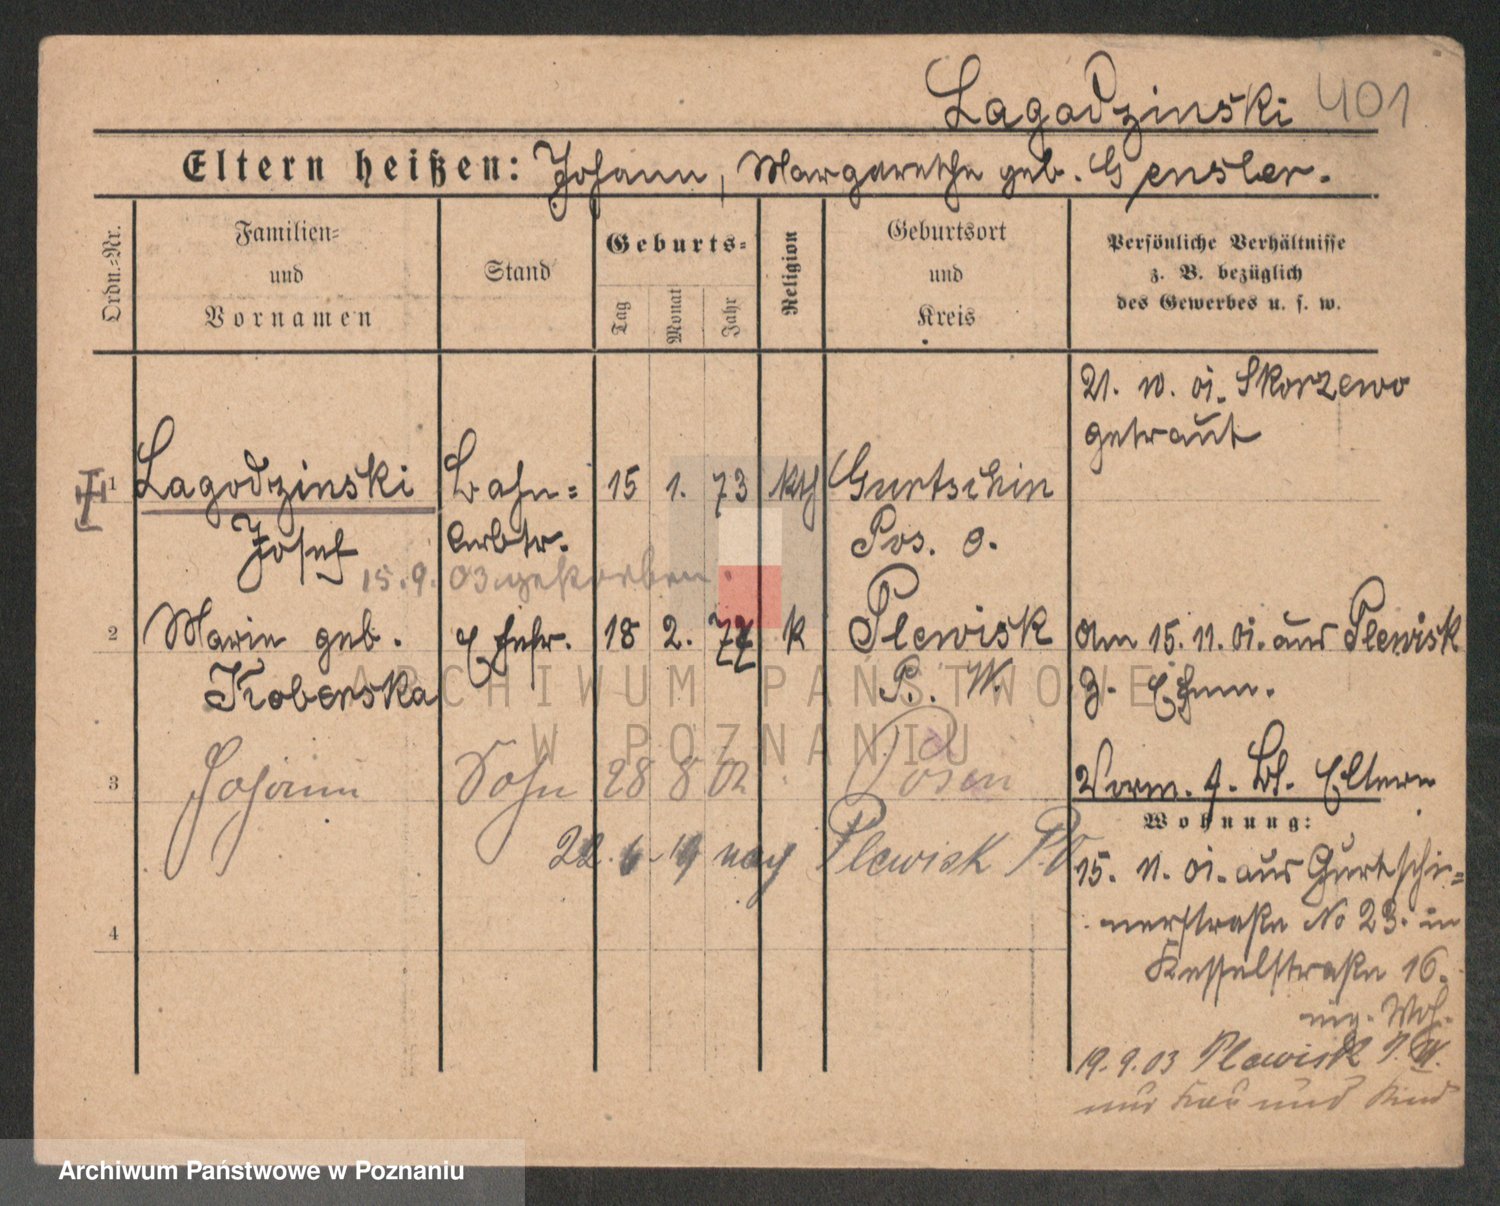 Lagodzinski 401
Eltern heißen: Johann, Margarethe geb. Gensler.
Ordn.-Nr.
Familien-
und
Vornamen
Stand
Geburts-
Tag
Monat
Jahr
Religion
Geburtsort
und
Kreis
Persönliche Verhältnisse
z. B. bezüglich
des Gewerbes u. s. w.
21. 10. 01. Skorzewo
getraut
1 Lagodzinski Bahn- 15 1. 73 kth Gurtschin
Josef arbtr. Pos. O.
15. 9. 03 gestorben.
2 Marie geb. Ehefr. 18 2. 77 k Plewisk
Koberska P. W.
am 15. 11. 01. aus Plewisk
z. Ehem.
3 Johann Sohn 28 8 02 Posen
Vorm. f. Bl. Eltern
22. 6. 19 nach Plewisk P.W
Wohnung:
15. 11. 01. aus Gurtschi-
nerstraße No 23. in
Kesselstraße 16.
eig. Woh.
19. 9. 03 Plewisk P. W.
nur Frau und Kind
4
ARCHIWUM PAŃSTWOWE
W POZNANIU
Archiwum Państwowe w Poznaniu